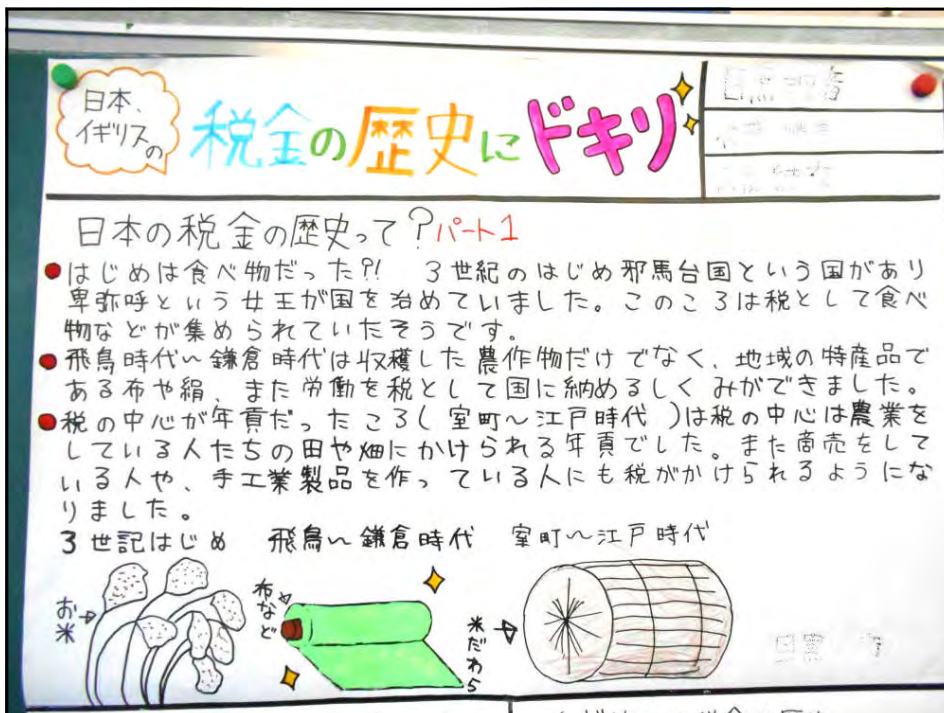 日本、
イギリスの
税金の歴史にドキリ
日本の税金の歴史って？パート1
●はじめは食べ物だった?! 3世紀のはじめ邪馬台国という国があり
卑弥呼という女王が国を治めていました。このころは税として食べ
物などが集められていたそうです。
●飛鳥時代～鎌倉時代は収穫した農作物だけでなく、地域の特産品で
ある布や絹、また労働を税として国に納めるしくみができました。
●税の中心が年貢だったころ(室町～江戸時代)は税の中心は農業を
している人たちの田や畑にかけられる年貢でした。また商売をして
いる人や、手工業製品を作っている人にも税がかけられるようにな
りました。
3世記はじめ 飛鳥～鎌倉時代 室町～江戸時代
お米
布など
米だわら